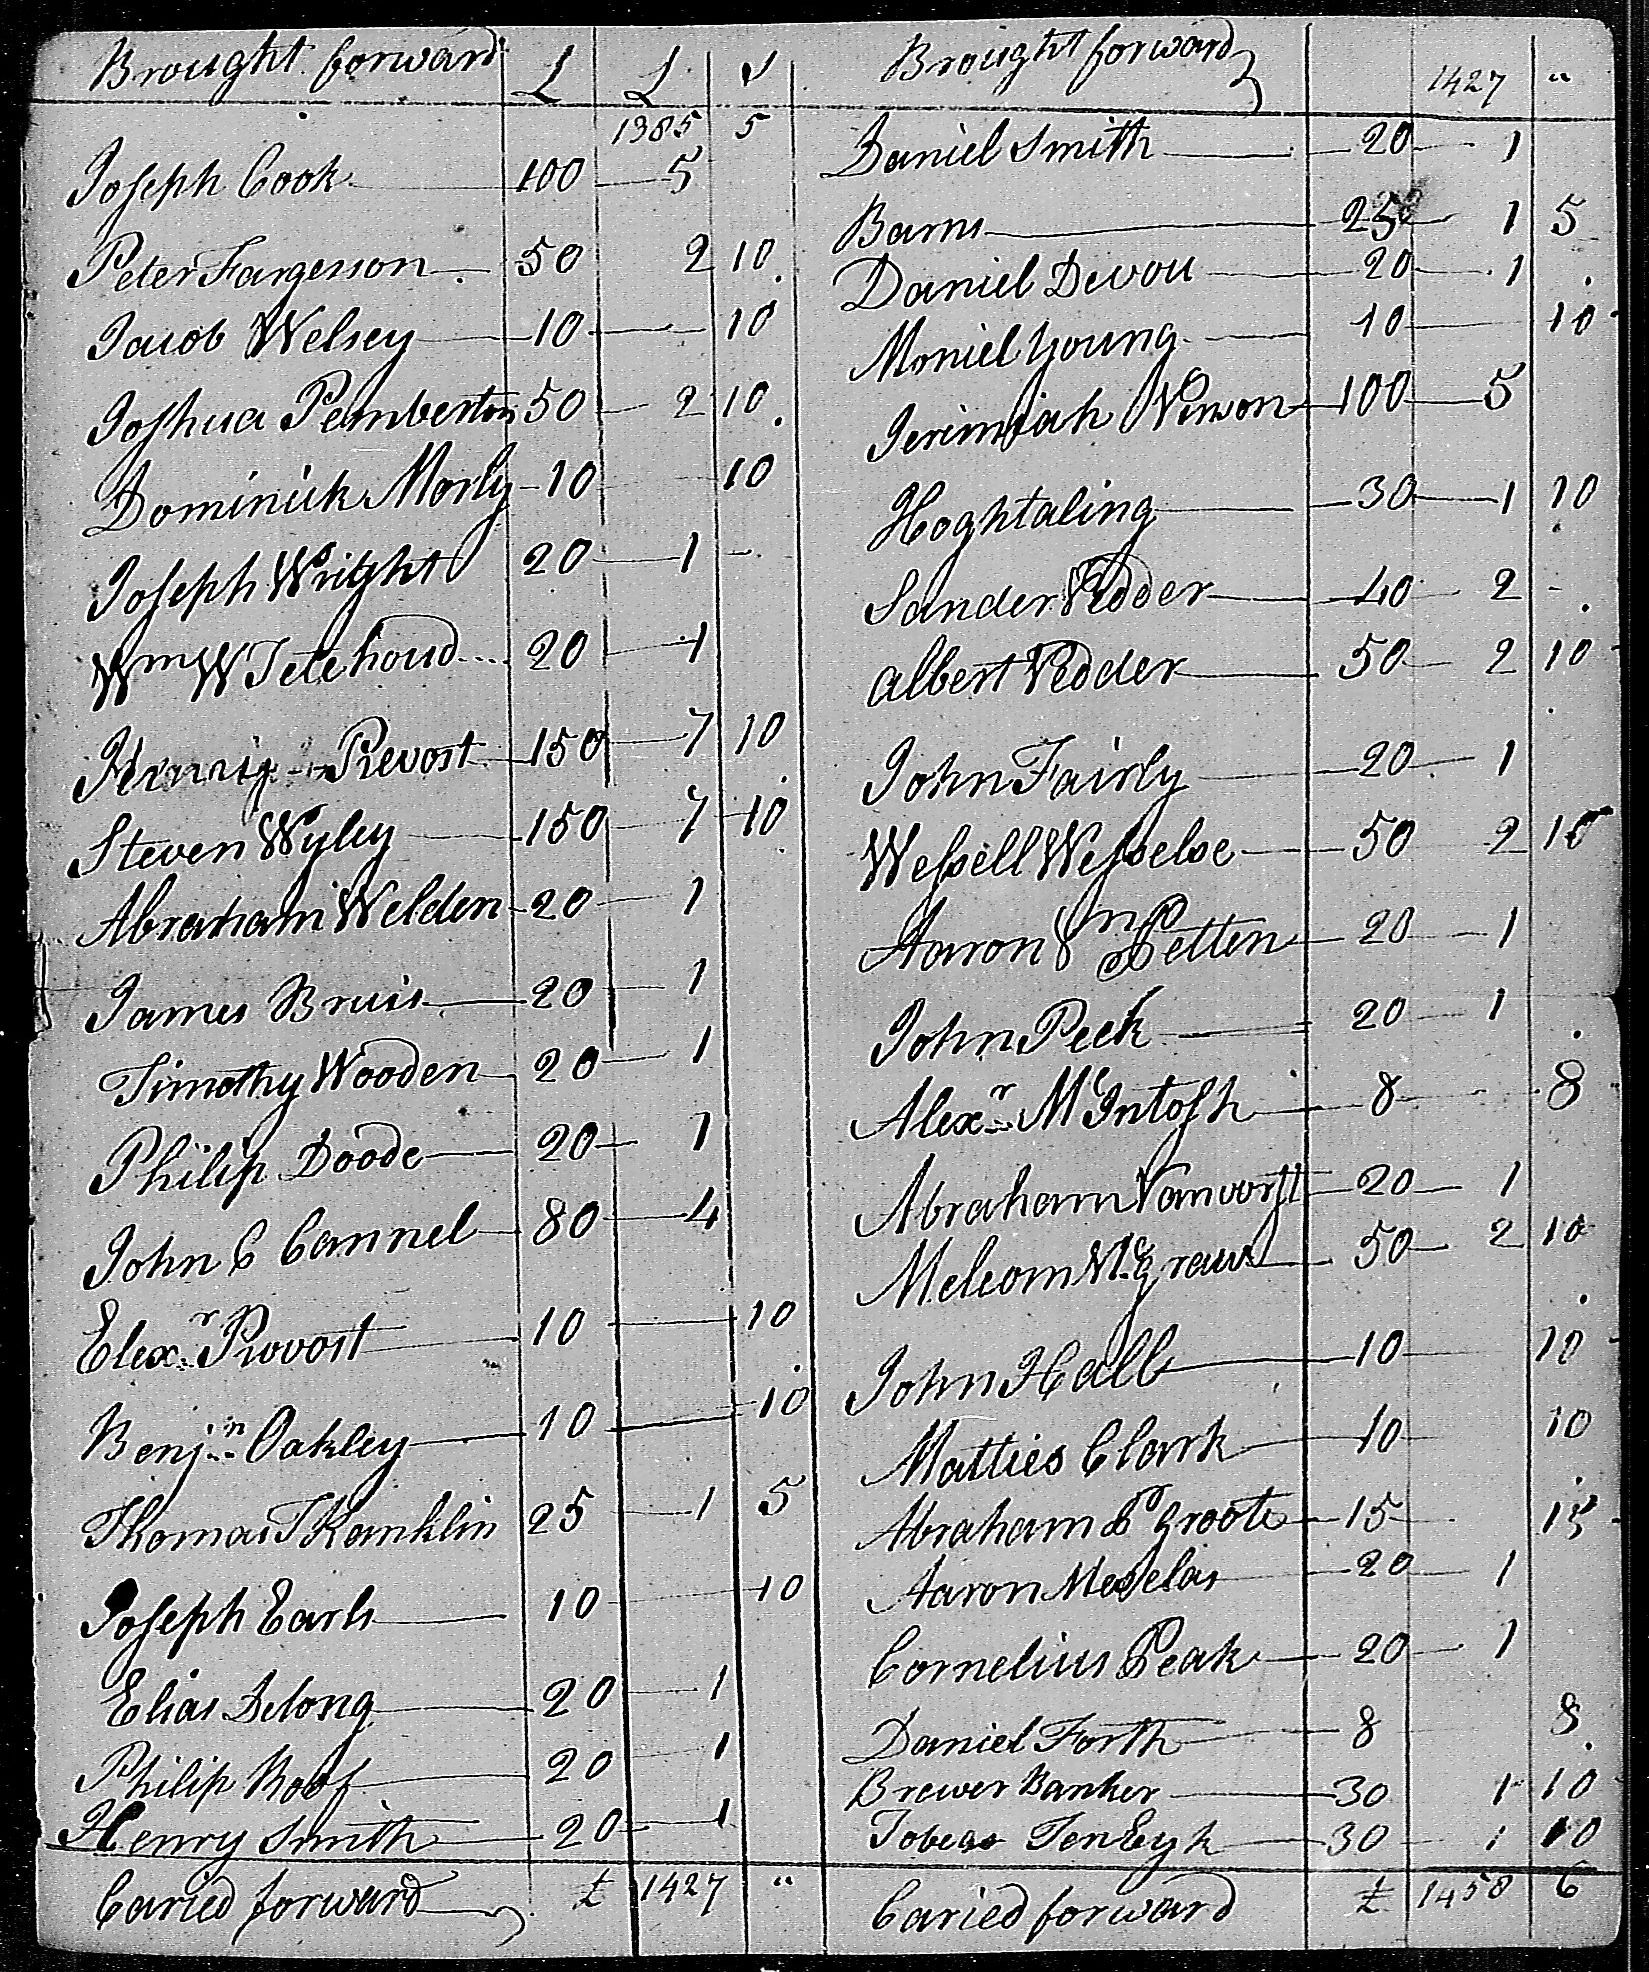 Brought forward £ £ s
1385 5
Joseph Cook 100 5
Peter Fargesson 50 2 10
Jacob Welsey 10 10
Joshua Pemberton 50 2 10
Dominick Morly 10 10
Joseph Wright 20 1 -
Wm W Tetehoud 20 1
Henry Prevost 150 7 10
Steven Wyley 150 7 10
Abraham Welden 20 1
James Bruis 20 1
Timothy Wooden 20 1
Philip Doode 20 1
John C Cannel 80 4
Elexr Provost 10 10
Benjn Oakley 10 10
Thomas T Ramklin 25 1 5
Joseph Earls 10 10
Elias Delong 20 1
Philip Roof 20 1
Henry Smith 20 1
Caried forward £ 1427 "
Brought forward 1427 "
Daniel Smith 20 1
Barns 25 1 5
Daniel Devou 20 1
Moniel Young 10 10
Jerimiah 100 5
Hoghtaling 30 1 10
Sander Vedder 40 2 -
Albert Vedder 50 2 10
John Fairly 20 1
Wessell Wesselse 50 2 10
Aaron Vn Petten 20 1
John Peek 20 1
Alexr McIntosh 8 8
Abraham Vanvorst 20 1
Melcom McGraw 50 2 10
John Hall 10 10
Matties Clark 10 10
Abraham D Groote 15 15
Aaron Meselas 20 1
Cornelius Peak 20 1
Daniel Forth 8 8
Brewer Banker 30 1 10
Tobeas TenEyk 30 1 10
Caried forward £ 1458 6